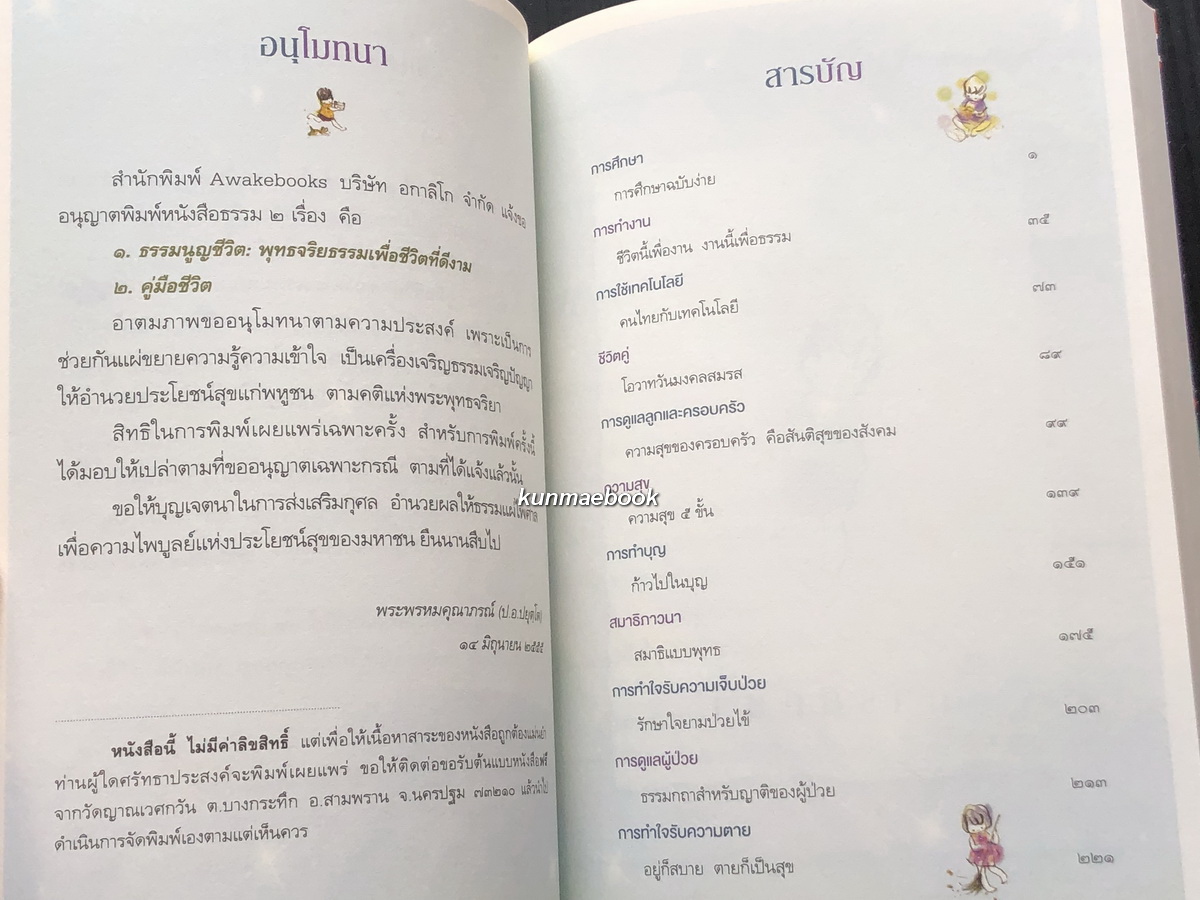 อนุโมทนา
สำนักพิมพ์ Awakebooks บริษัท อกาลิโก จำกัด แจ้งขอ
อนุญาตพิมพ์หนังสือธรรม ๒ เรื่อง คือ
๑. ธรรมนูญชีวิต: พุทธจริยธรรมเพื่อชีวิตที่ดีงาม
๒. คู่มือชีวิต
อาตมภาพขออนุโมทนาตามความประสงค์ เพราะเป็นการ
ช่วยกันแผ่ขยายความรู้ความเข้าใจ เป็นเครื่องเจริญธรรมเจริญปัญญา
ให้อำนวยประโยชน์สุขแก่พหูชน ตามคติแห่งพระพุทธจริยา
สิทธิในการพิมพ์เผยแพร่เฉพาะครั้ง สำหรับการพิมพ์ครั้งนี้
ได้มอบให้เปล่าตามที่ขออนุญาตเฉพาะกรณี ตามที่ได้แจ้งแล้วนั้น
ขอให้บุญเจตนาในการส่งเสริมกุศล อำนวยผลให้ธรรมแผ่ไพศาล
เพื่อความไพบูลย์แห่งประโยชน์สุขของมหาชน ยืนนานสืบไป
พระพรหมคุณาภรณ์ (ป.อ.ปยุตฺโต)
๑๔ มิถุนายน ๒๕๕๕
หนังสือนี้ ไม่มีค่าลิขสิทธิ์ แต่เพื่อให้เนื้อหาสาระของหนังสือถูกต้องแม่นยำ
ท่านผู้ใดศรัทธาประสงค์จะพิมพ์เผยแพร่ ขอให้ติดต่อขอรับต้นแบบหนังสือฟรี
จากวัดญาณเวศกวัน ต.บางกระทึก อ.สามพราน จ.นครปฐม ๗๓๒๑๐ แล้วนำไป
ดำเนินการจัดพิมพ์เองตามแต่เห็นควร
สารบัญ
การศึกษา
การศึกษาฉบับง่าย ๑
การทำงาน
ชีวิตนี้เพื่องาน งานนี้เพื่อธรรม ๓๕
การใช้เทคโนโลยี
คนไทยกับเทคโนโลยี ๗๓
ชีวิตคู่
โอวาทวันมงคลสมรส ๘๙
การดูแลลูกและครอบครัว
ความสุขของครอบครัว คือสันติสุขของสังคม ๙๙
ความสุข
ความสุข ๕ ชั้น ๑๓๙
การทำบุญ
ก้าวไปในบุญ ๑๕๑
สมาธิภาวนา
สมาธิแบบพุทธ ๑๗๕
การทำใจรับความเจ็บป่วย
รักษาใจยามป่วยไข้ ๒๐๓
การดูแลผู้ป่วย
ธรรมกถาสำหรับญาติของผู้ป่วย ๒๑๓
การทำใจรับความตาย
อยู่ก็สบาย ตายก็เป็นสุข ๒๒๑
kunmaebook